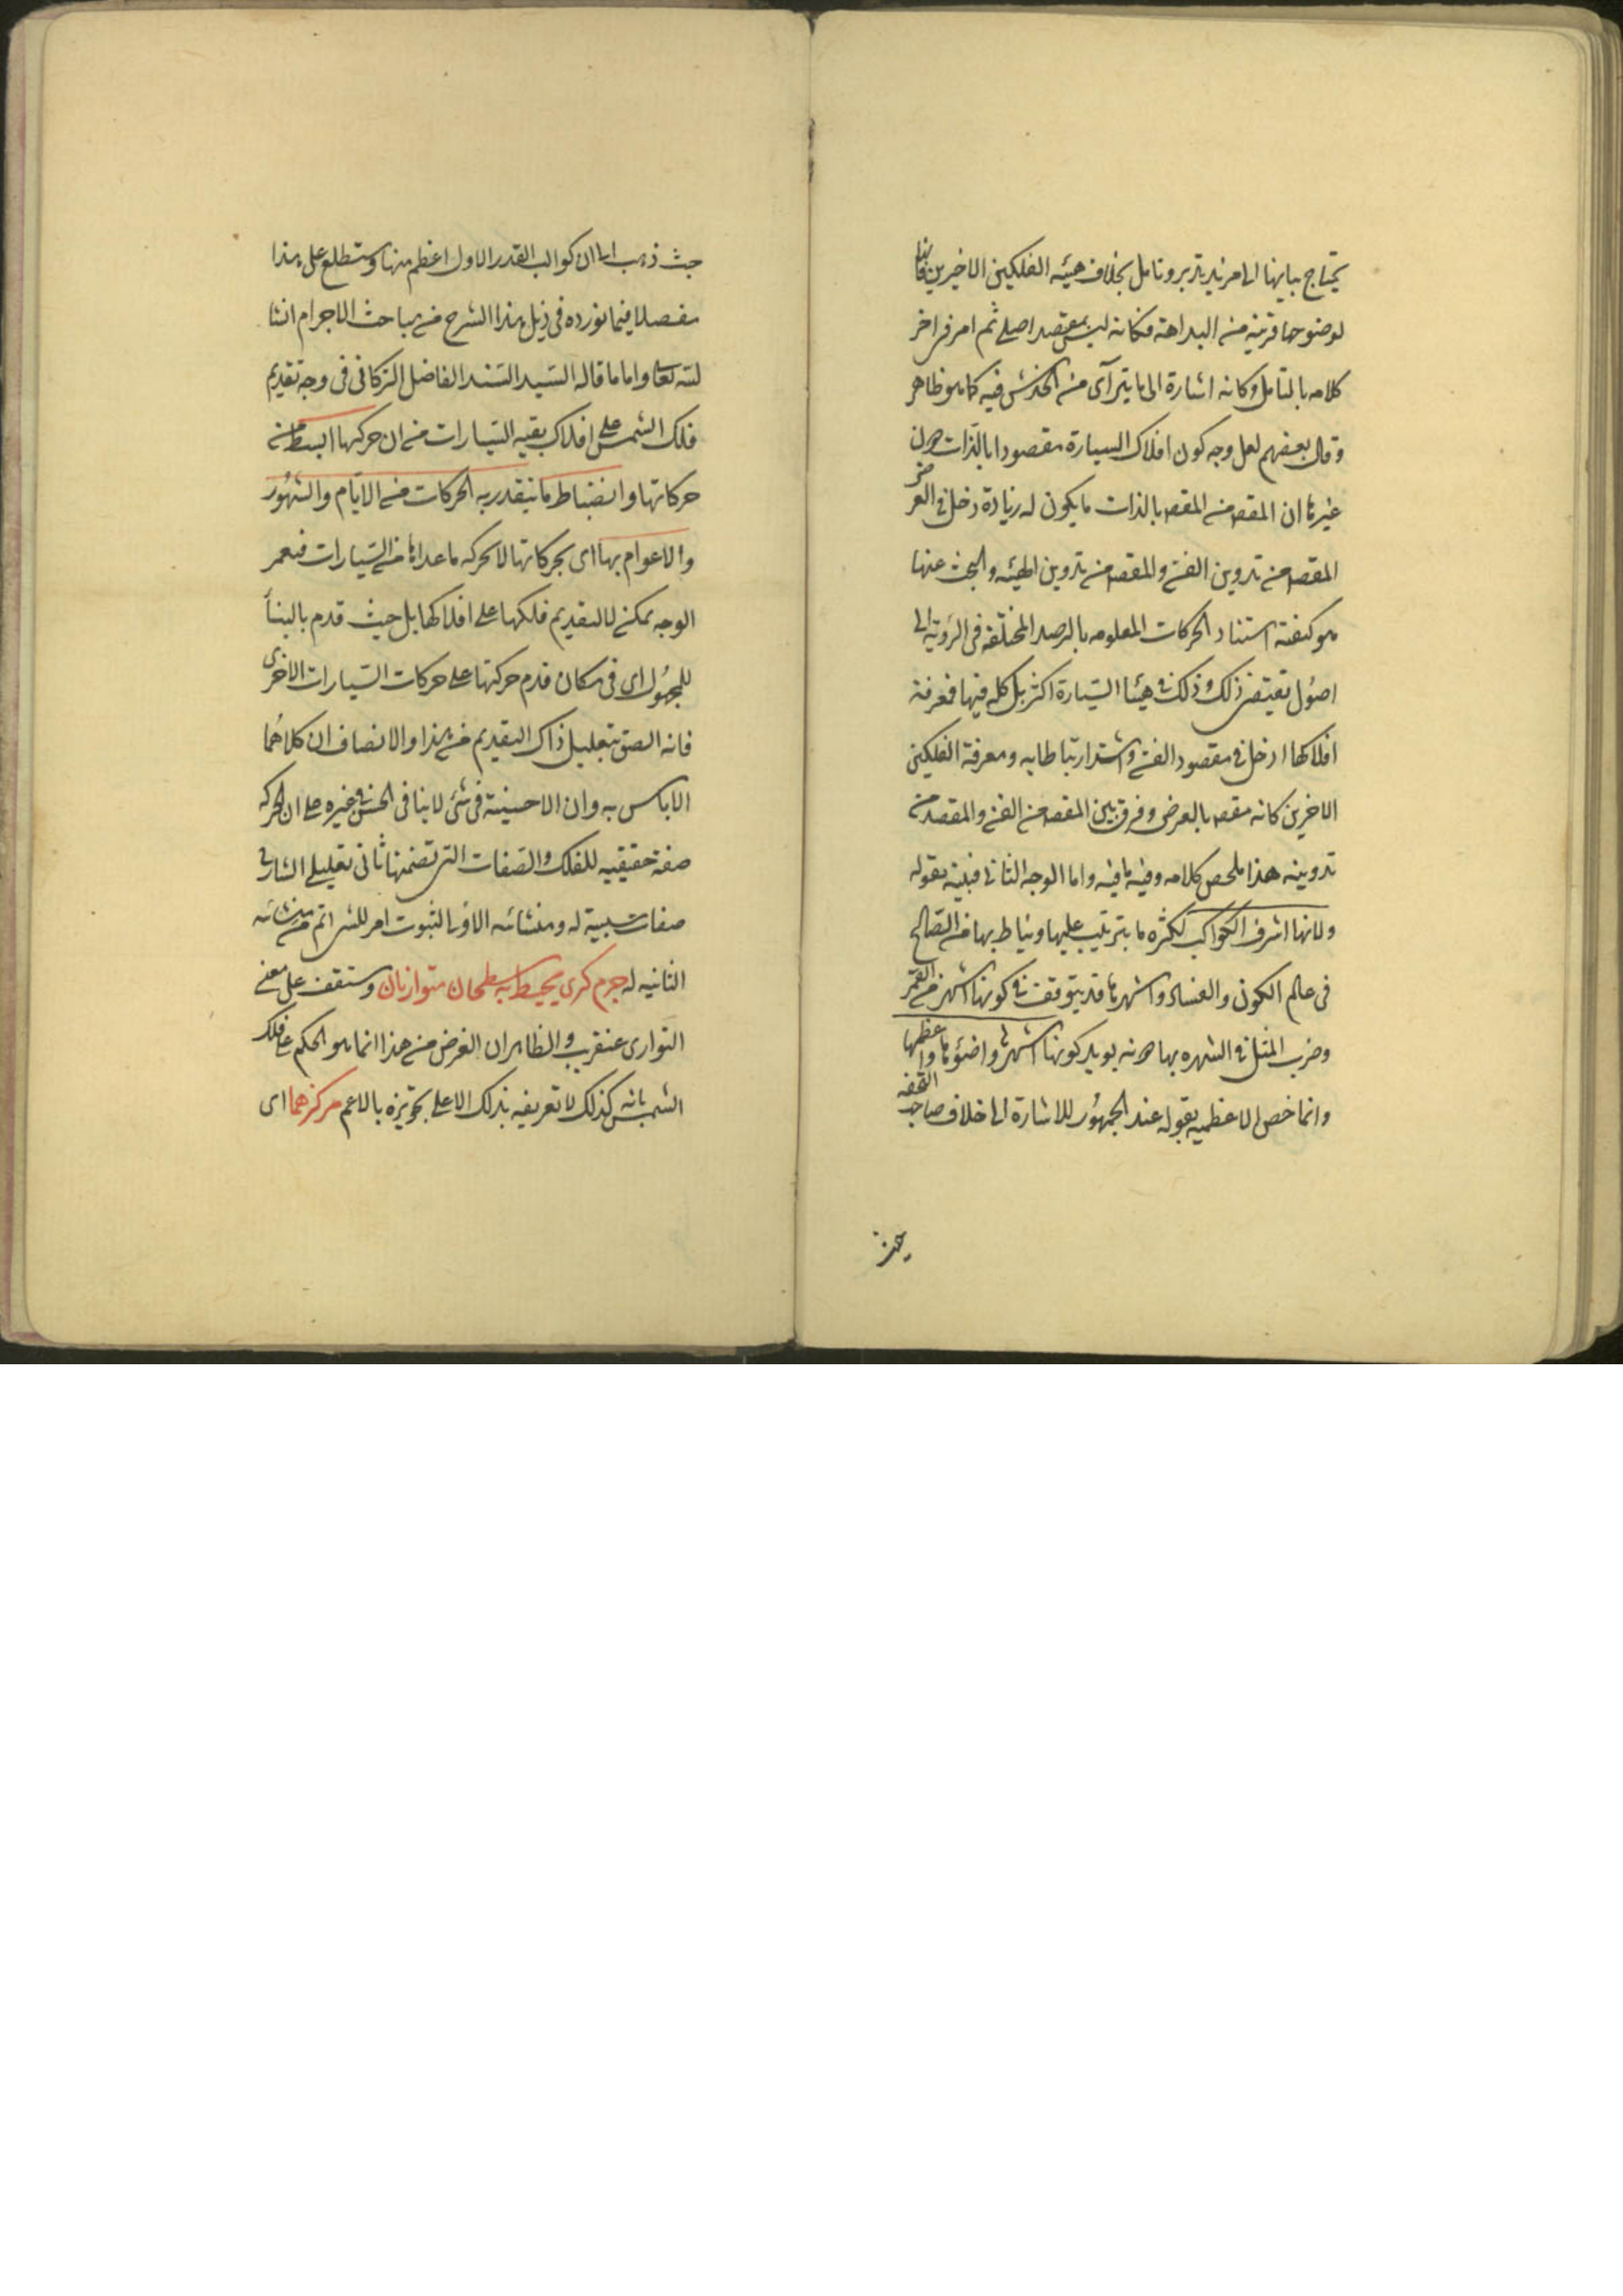 يحتاج بيانها الى مزيد تدبر وتامل بخلاف هيئه الفلكين الاخيرين فانها
لوضوحها قريبة من البداهة فكانه ليس بمقصد اصلي ثم امر في اخر
كلامه بالتامل وكانه اشارة الى ما يترآى من الخدش فيه كما هو ظاهر
وقال بعضهم لعل وجه كون افلاك السيارة مقصودا بالذات دون
غيرها ان المقصد من المقصد بالذات ما يكون له زيادة دخل في الغرض
المقصد من تدوين الفن والمقصد من تدوين الهيئه والبحث عنها
هو كيفية استناد الحركات المعلومه بالرصد المختلفه في الرؤية الى
اصول تقتضي ذلك وذلك في هيئا السيارة اكثر بل كله فيها فمعرفة
افلاكها ادخل في مقصود الفن واشد ارتباطا به ومعرفة الفلكين
الاخرين كانه مقصد بالعرض وفرق بين المقصد من الفن والمقصد من
تدوينه هذا ملخص كلامه وفيه ما فيه واما الوجه الثاني فبينه بقوله
ولانها اشرف الكواكب لكثرة ما يترتب عليها ويناط بها من المصالح
في عالم الكون والفساد واشهرها قد يتوقف في كونها اشهر من القمر
وضرب المثل في الشهره بها دونه يويد كونها اشهر واضوئها واعظمها
وانما خص الاعظميه بقوله عند الجمهور للاشارة الى خلاف صاحب التحفه
حيث
حيث ذهب الى ان كواكب القدر الاول اعظم منها وستطلع على هذا
مفصلا فيما نورده في ذيل هذا الشرح من مباحث الاجرام انشا
لله تعا واما ما قاله السيد السند الفاضل التركاني في وجه تقديم
فلك الشمس على افلاك بقيه السيارات من ان حركتها ابسط من
حركاتها وانضباط ما يتقدر به الحركات من الايام والشهور
والاعوام بها اي بحركاتها لا بحركه ما عداها من السيارات فنعم
الوجه يمكن لا لتقديم فلكها على افلاكها بل حيث قدم بالبنأ
للمجهول اي في مكان قدم حركتها على حركات السيارات الاخرى
فانه الصق بتعليل ذاك التقديم من هذا والانصاف ان كلاهما
لا باس به وان الاحسنية في شئ لا ينافي الحسن في غيره على ان الحركه
صفة حقيقيه للفلك والصفات التي تضمنها ثاني تعليلي الشارح
صفات سببية له ومنشائه الاولى لثبوت امر للشي اتم من منشائه
الثانيه له جرم كري يحيط به سطحان متوازيان وستقف على معنى
التوازى عنقريب والظاهر ان الغرض من هذا انما هو الحكم على فلك
الشمس بانه كذلك لا تعريفه بذلك الا على تجويزه بالاعم مركزهما اى